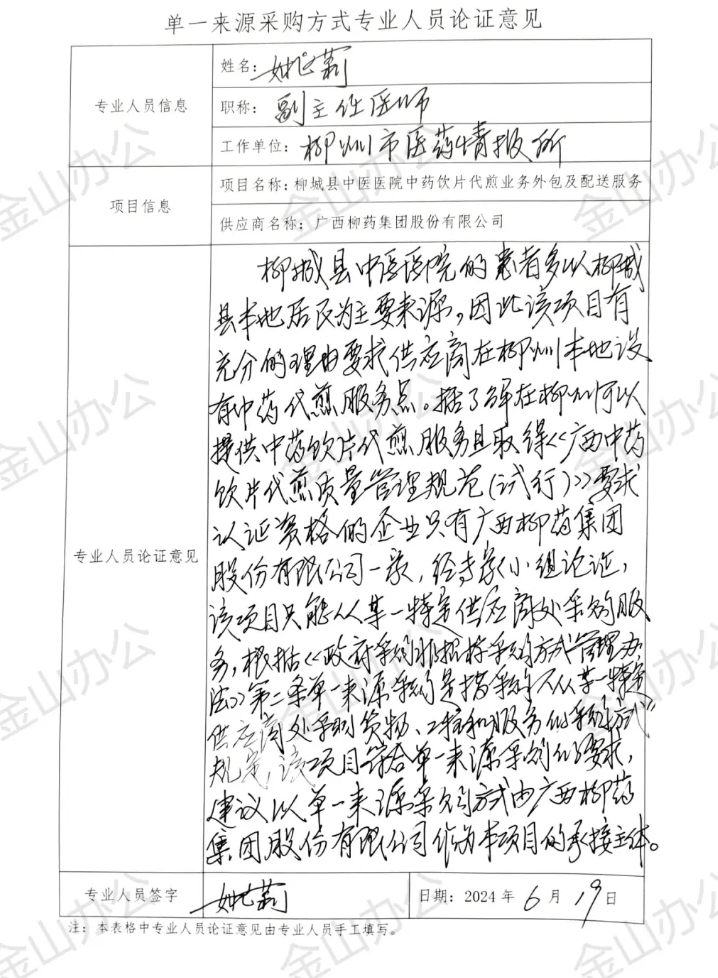 单一来源采购方式专业人员论证意见
专业人员信息
姓名：姚莉
职称：副主任医师
工作单位：柳州市医药情报所
项目信息
项目名称：柳城县中医医院中药饮片代煎业务外包及配送服务
供应商名称：广西柳药集团股份有限公司
专业人员论证意见
柳城县中医医院的患者多以柳城
县本地居民为主要来源，因此该项目有
充分的理由要求供应商在柳州本地设
有中药代煎服务点。据了解在柳州可以
提供中药饮片代煎服务且取得《广西中药
饮片代煎质量管理规范（试行）》要求
认证资格的企业只有广西柳药集团
股份有限公司一家，经专家小组论证，
该项目只能从某一特定供应商处采购服
务，根据《政府采购非招标采购方式管理办
法》第二条单一来源采购是指采购人从某一特定
供应商处采购货物、工程和服务的采购方式
规定，该项目符合单一来源采购的要求，
建议以单一来源采购方式由广西柳药
集团股份有限公司作为本项目的承接主体。
专业人员签字
姚莉
日期：2024年6月19日
注：本表格中专业人员论证意见由专业人员手工填写。
金山办公
金山办公
金山办公
金山办公
金山办公
金山办公